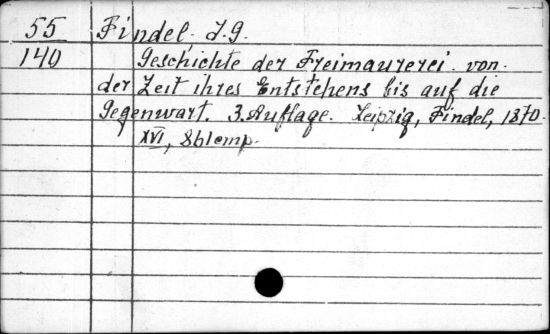 55 Findel, J. G.
140 Geschichte der Freimaurerei von
der Zeit ihres Entstehens bis auf die
Gegenwart. 3. Auflage. Leipzig, Findel, 1870.
XVI, 861 cmp.